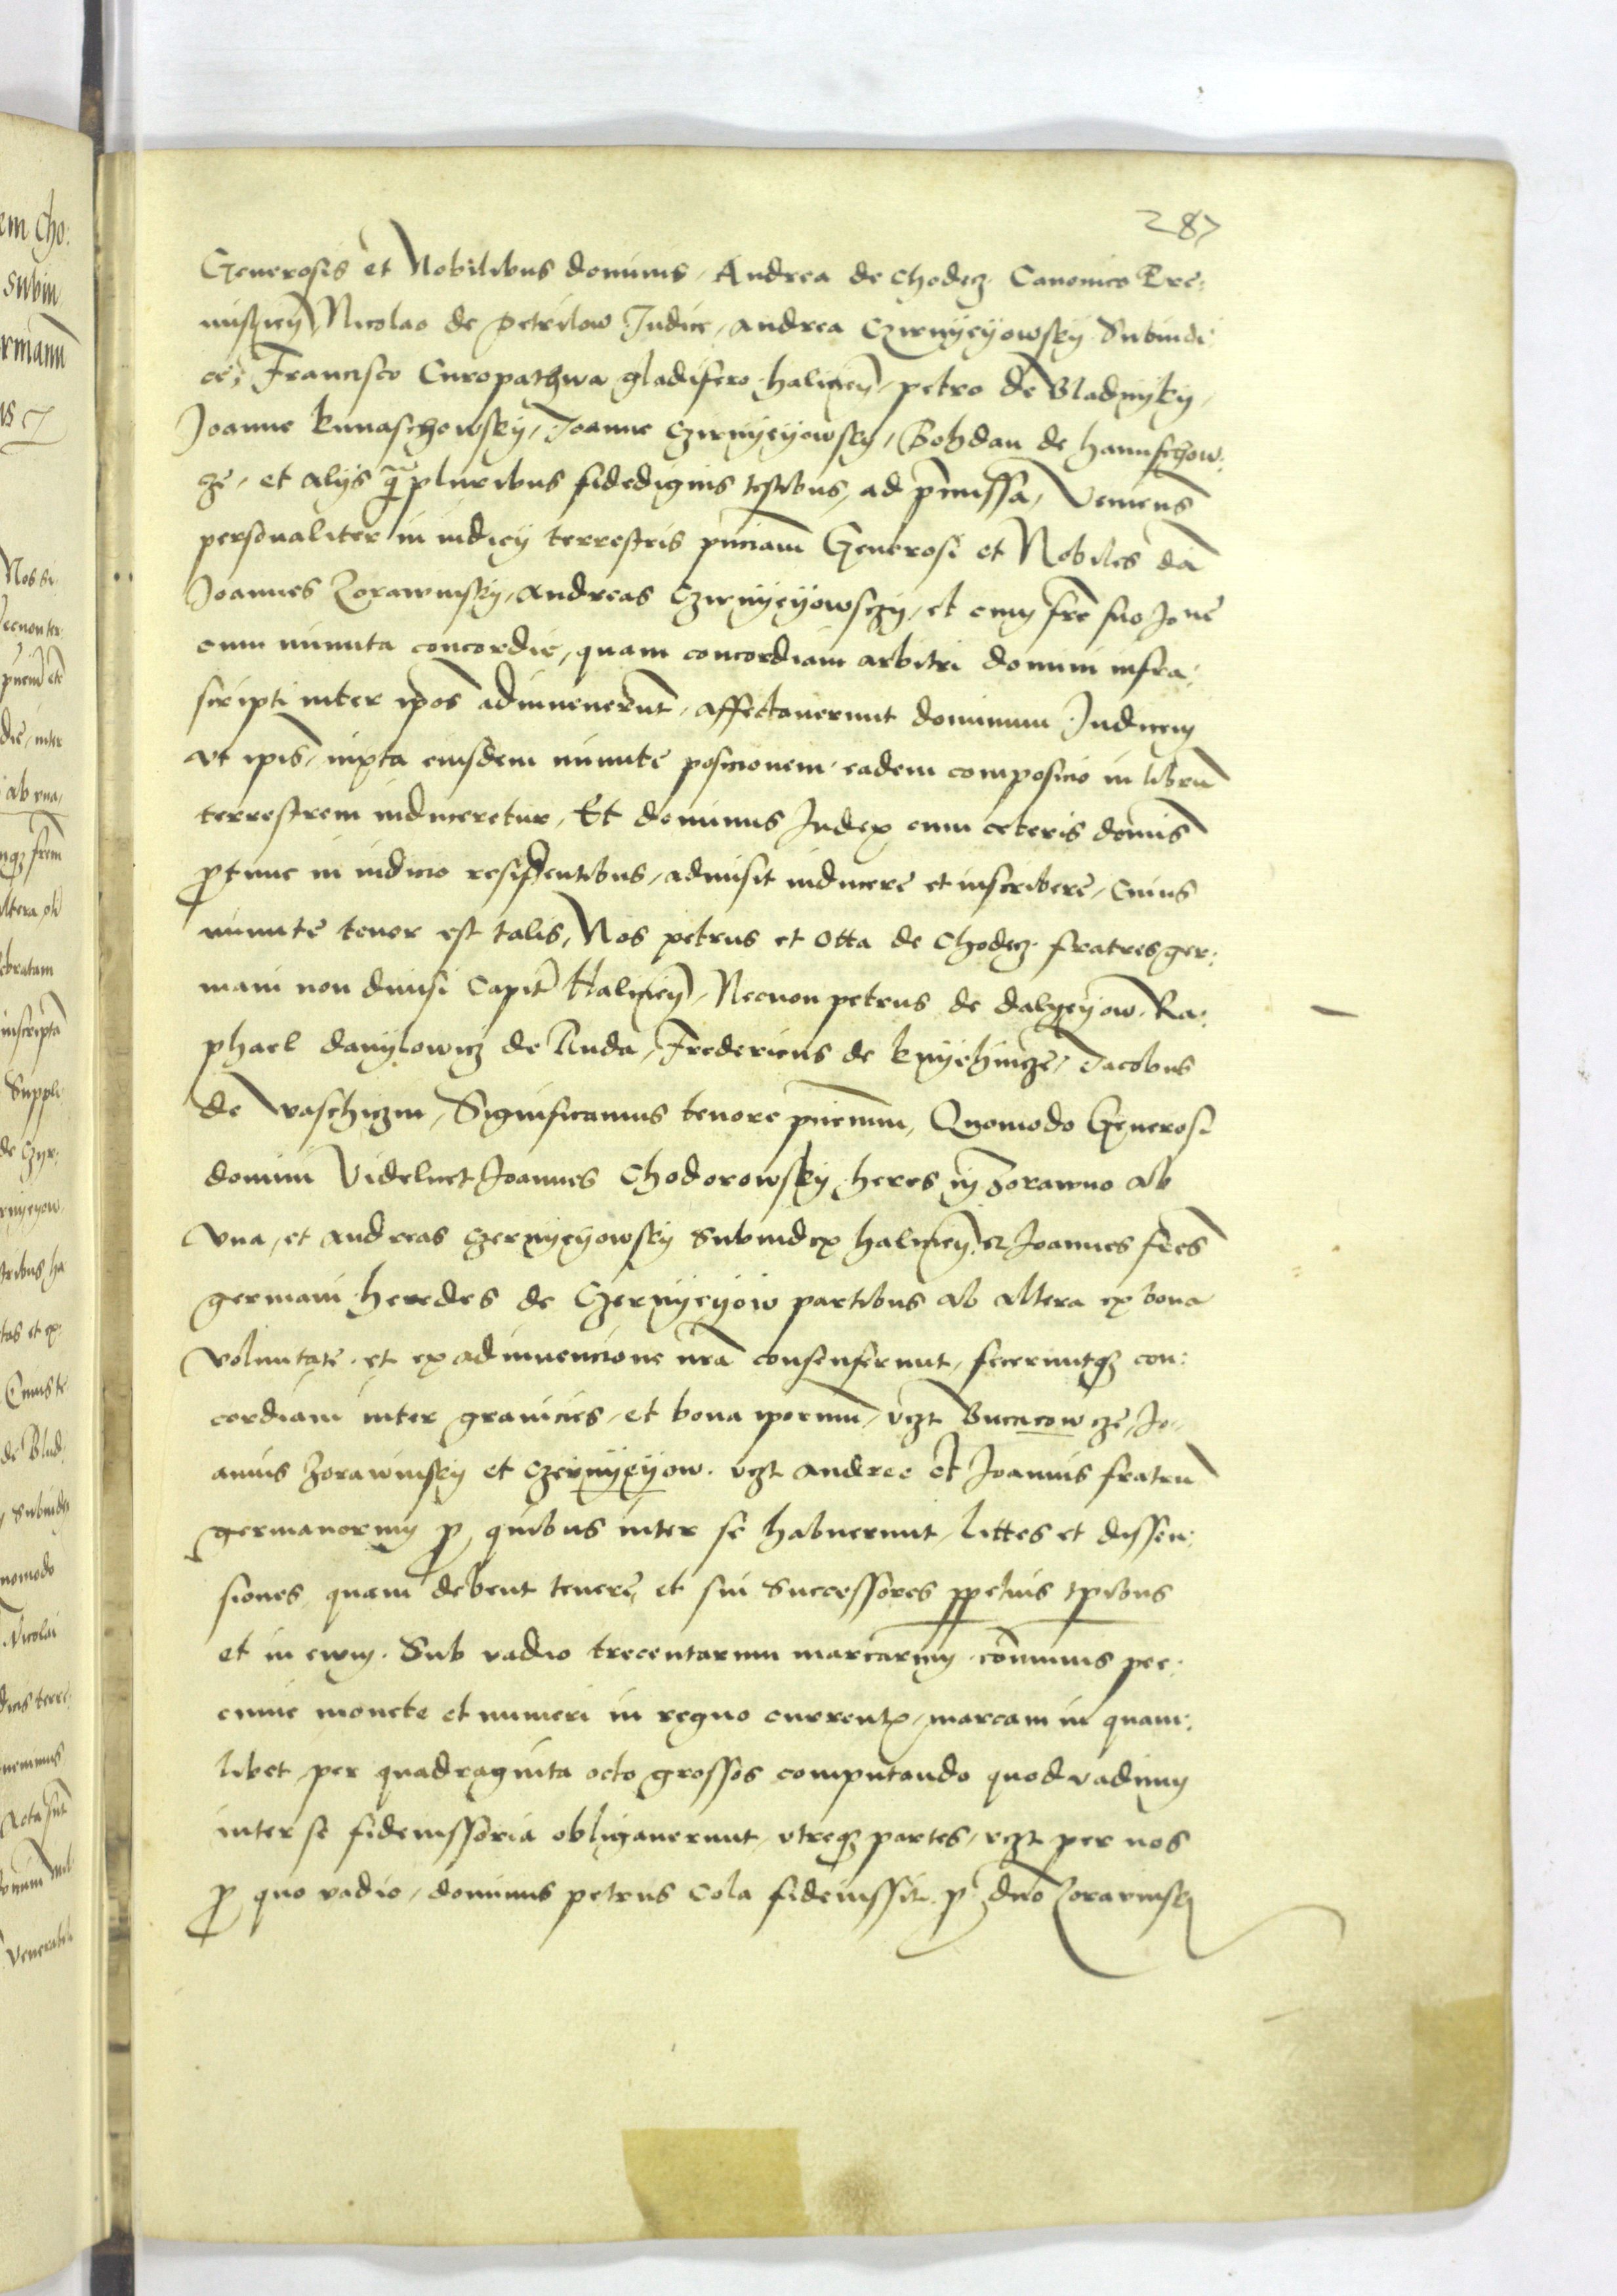 287
Generosis et Nobilibus dominis, Andrea de Chodecz Canonico Pre:
misliеn̄, Nicolao de petrilow Judice, Andrea Czirnyeyowsky Subiudi:
ce, Francisco Curopathwa gladifero halicien̄, petro de Bladnyky,
Joanne kunaschowsky, Joanne Czirnyeyowsky, Bohdan de hannschow:
cze, et alys q̄pluribus fidedignis testibus, ad p̄missa, Veniens
personaliter in iudicy terrestris pn̄ciam Generosi et Nobiles dn̄i
Joannes Zorawinsky, Andreas Czirnyeyowsczy, et cum fr̄e suo Jo ne
cum minuta concordie, quam concordiam arbitri domini infra:
scripti inter ip̄os adinuenerūt, affectauerunt dominum Judicem
vt ip̄is, iuxta eiusdem minute posicionem eadem composicio in librū
terrestrem induceretur, Et dominus Judex cum ceteris domīs
ꝓtunc in iudicio residentibus, admisit inducere et inscribere, Cuius
minute tenor est talis, Nos petrus et Otta de Chodecz fratres ger:
mani non diuisi Capit̄ Halicien̄, Necnon petrus de dalyeyow, Ra:
phael danylowicz de Ruda, Fredericus de knyehinicze, Jacobus
de vaschiczin, Significamus tenore pn̄cium, Quomodo Generosi
domini Videlicet Joannes Chodorowsky heres in Zorawno ab
vna, et andreas Czernyeyowsky Subiudex halicien̄ et Joannes fr̄es
germani heredes de Czernyeyow partibus ab altera ex bona
voluntate et ex adinuencione nr̄a consenserunt, feceruntqꝫ con:
cordiam inter granicies, et bona ipsorum, vczt Bucacowcze, Jo-
annis Zorawinsky et Czernyeyow vczt andree et Joannis fratrū
germanorum ꝓ quibus inter se habuerunt, littes et dissen:
siones, quam debent tenere, et sui Successores ꝑpetuis tp̄ibus
et in ewm. Sub vadio trecentarum marcarum cōmunis pec:
cunie monete et numeri in regno currentꝭ, marcam in quam:
libet per quadraginta octo grossos computando quod vadium
inter se fideiussoria obligauerunt, vtreqꝫ partes, vczt per nos
ꝓ quo vadio, dominus petrus Cola fideiussit ꝓ dn̄o Zorawinsky